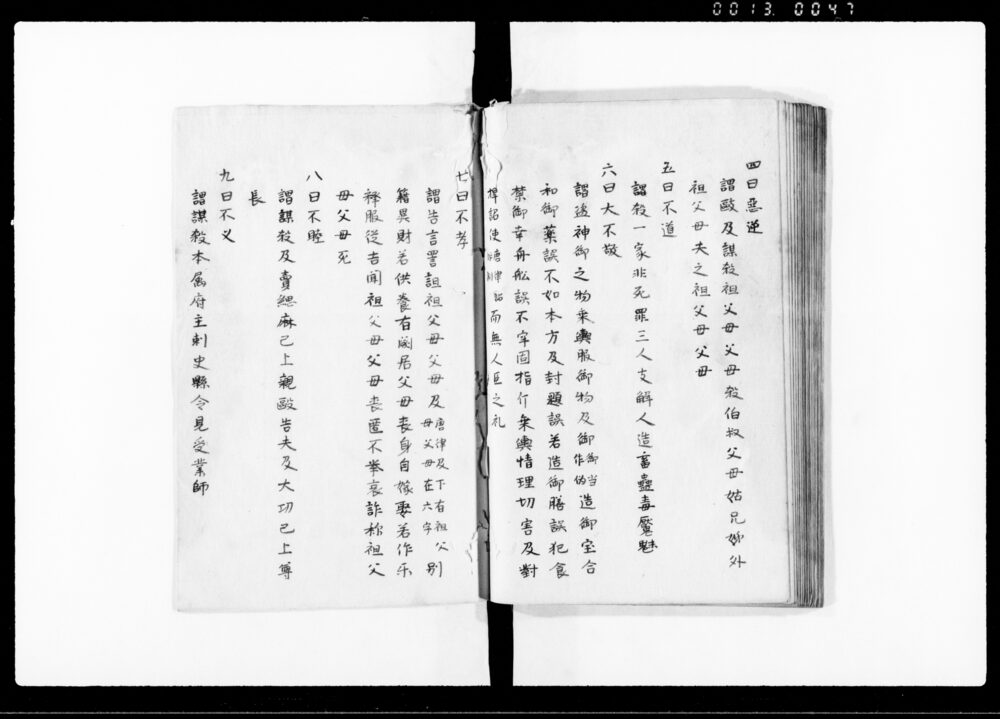 0013.0047
四曰惡逆
謂毆及謀殺祖父母父母殺伯叔父母姑兄姉外
祖父母夫之祖父母父母
五曰不道
謂殺一家非死罪三人支解人造畜蠱毒魘魅
六曰大不敬
謂盗神御之物乘輿服御物及御御当作偽造御宝合
和御藥誤不如本方及封題誤若造御膳誤犯食
禁御幸舟舩誤不牢固指斥乘輿情理切害及對
捍詔使唐律詔而無人臣之礼
七曰不孝
謂告言詈詛祖父母父母及唐律及下有祖父母父母在六字別
籍異財若供養有闕居父母喪身自嫁娶若作乐
释服從吉聞祖父母父母喪匿不挙哀詐称祖父
母父母死
八曰不睦
謂謀殺及賣緦麻已上親毆告夫及大功已上尊
長
九曰不义
謂謀殺本属府主刺史縣令見受業師